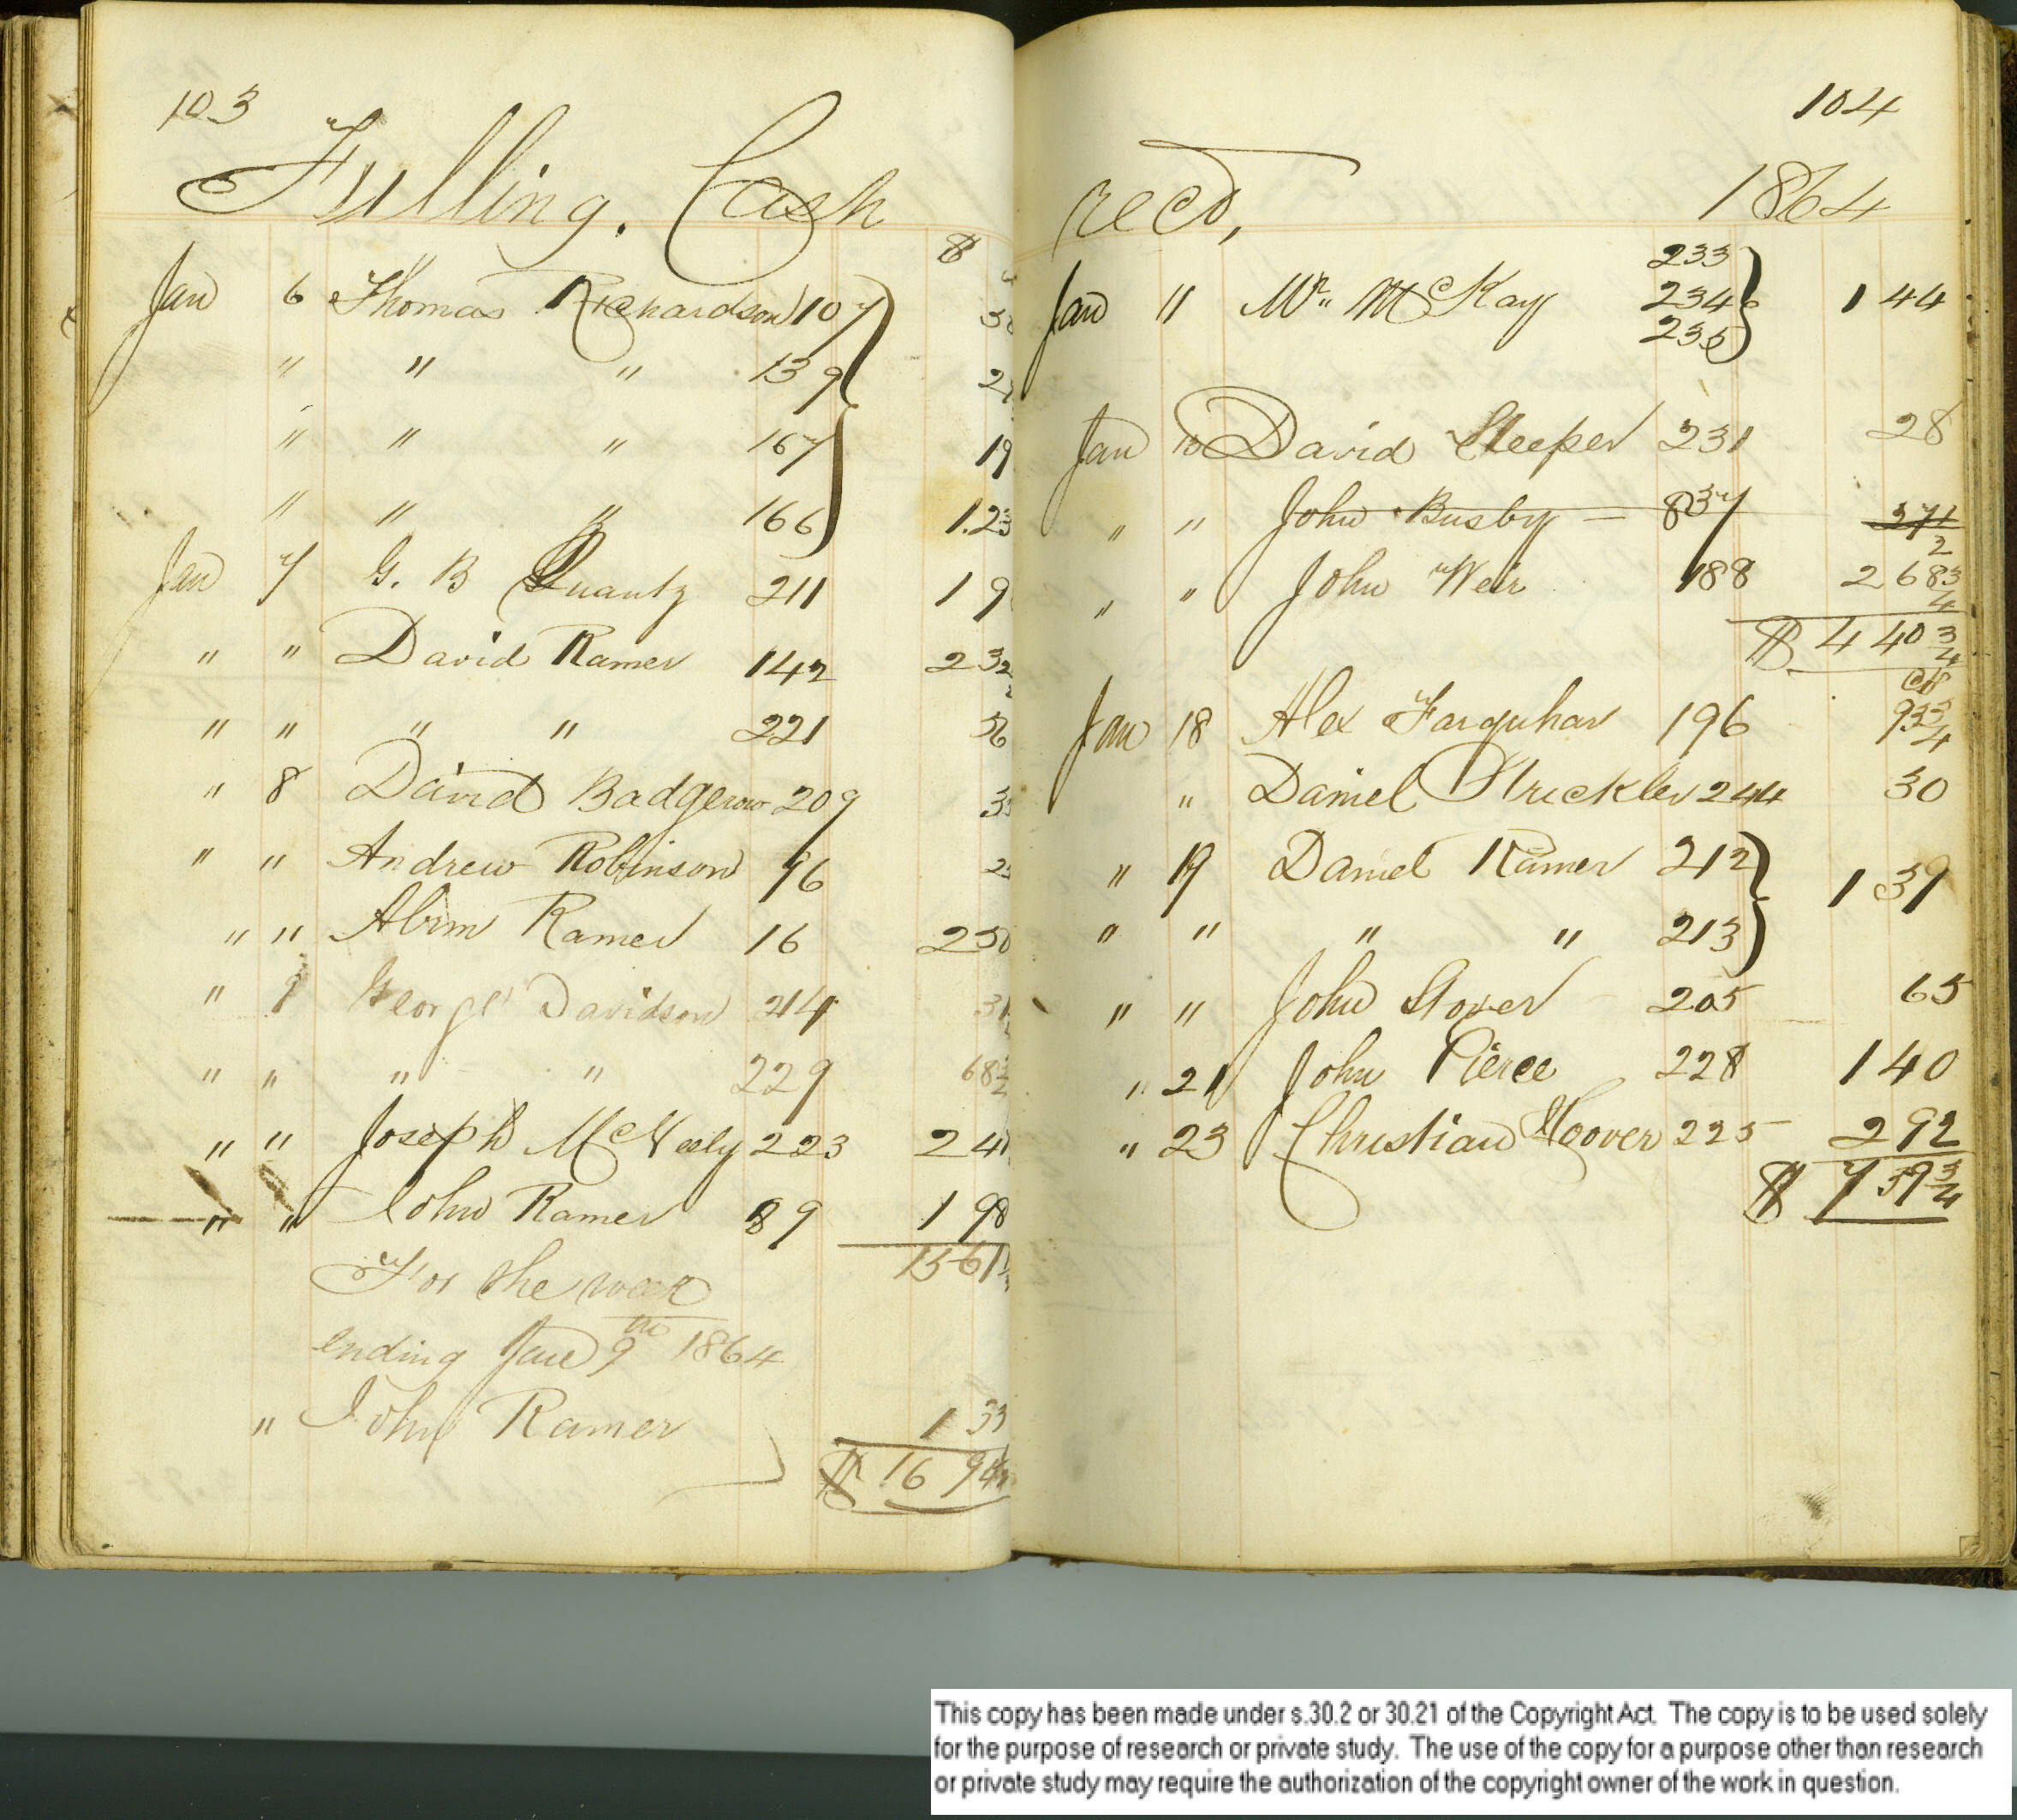 103
Fulling. Cash
$
Jan 6 Thomas Richardson 107
" " " 139
" " " 167 19
" " " 166 1.23
Jan 7 G. B Quantz 211 1 9
" " David Ramer 142 2 32
" " " " 221 36
" 8 David Badgerow 209 33
" " Andrew Robinson 96
" " Abrm Ramer 16 2 30
" 9 George Davidson 214 31
" " " " 229 68 1/2
" " Joseph McNeely 223 2 41
" " John Ramer 89 1 98
For the week 1561
ending Jan 9th 1864
" John Ramer 1 33
$ 16 94
104
recd, 1864
233
Jan 11 Mr. McKay 234 1 44
235
Jan 13 David Steeper 231 28
" " John Busby — 837 37 1/2
" " John Weir 188 2 68 3/4
$ 4 40 3/4
Jan 18 Alex Farquhar 196 93 3/4
" Daniel Strickler 244 30
" 19 Daniel Ramer 212 1 39
" " " " 213
" " John Stover 205 65
" 21 John Pierce 228 1 40
" 23 Christian Hoover 225 2 92
$ 7 59 3/4
This copy has been made under s.30.2 or 30.21 of the Copyright Act. The copy is to be used solely
for the purpose of research or private study. The use of the copy for a purpose other than research
or private study may require the authorization of the copyright owner of the work in question.